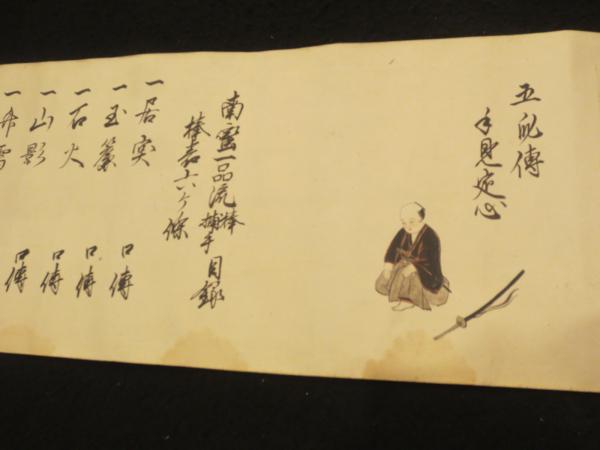 五
傳
手見定心
南蛮一品流棒捕手目録
棒表十六ケ條
一居実
一玉簾 口傳
一石火 口傳
一山影 口傳
一 口傳